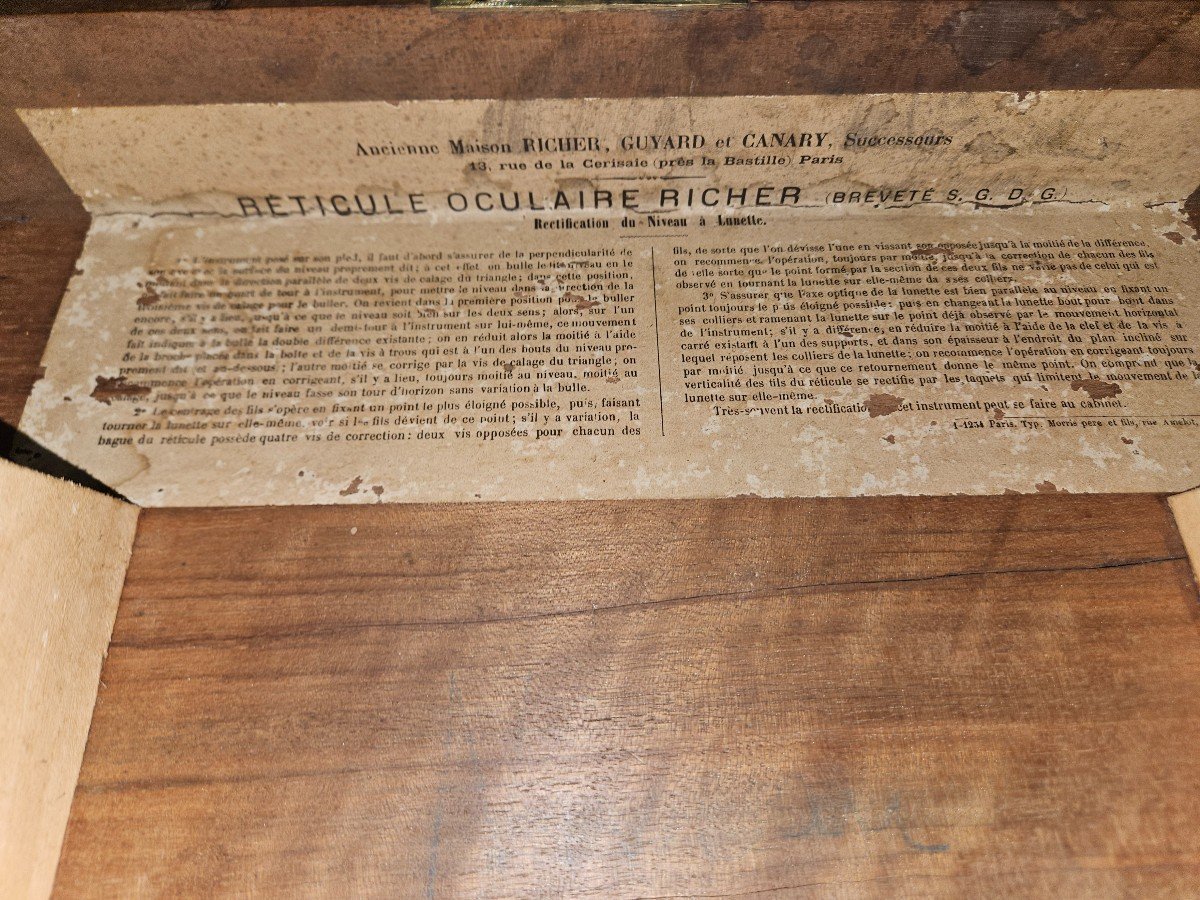 Ancienne Maison RICHER, GUYARD et CANARY, Successeurs
13, rue de la Cerisaie (près la Bastille) Paris
RÉTICULE OCULAIRE RICHER (BREVETÉ S. G. D. G.)
Rectification du Niveau à Lunette.
L'instrument posé sur son pied, il faut d'abord s'assurer de la perpendicularité de
la surface du niveau proprement dit; à cet effet on bulle le niveau en le
dans la direction parallèle de deux vis de calage du triangle; dans cette position,
faire un quart de tour à l'instrument, pour mettre le niveau dans la direction de la
troisième vis de calage pour le buller. On revient dans la première position pour le buller
encore, s'il y a lieu, jusqu'à ce que le niveau soit bien sur les deux sens; alors, sur l'un
de ces deux sens, on fait faire un demi-tour à l'instrument sur lui-même, ce mouvement
fait indiquer à la bulle la double différence existante; on en réduit alors la moitié à l'aide
de la broche placée dans la boîte et de la vis à trous qui est à l'un des bouts du niveau pro-
prement dit et au-dessous; l'autre moitié se corrige par la vis de calage du triangle; on
commence l'opération en corrigeant, s'il y a lieu, toujours moitié au niveau, moitié au
calage, jusqu'à ce que le niveau fasse son tour d'horizon sans variation à la bulle.
2º Le centrage des fils s'opère en fixant un point le plus éloigné possible, puis, faisant
tourner la lunette sur elle-même, voir si les fils dévient de ce point; s'il y a variation, la
bague du réticule possède quatre vis de correction: deux vis opposées pour chacun des
fils, de sorte que l'on dévisse l'une en vissant son opposée jusqu'à la moitié de la différence,
on recommence l'opération, toujours par moitié, jusqu'à la correction de chacun des fils
de telle sorte que le point formé par la section de ces deux fils ne varie pas de celui qui est
observé en tournant la lunette sur elle-même dans ses colliers.
3º S'assurer que l'axe optique de la lunette est bien parallèle au niveau en fixant un
point toujours le plus éloigné possible; puis en changeant la lunette bout pour bout dans
ses colliers et ramenant la lunette sur le point déjà observé par le mouvement horizontal
de l'instrument; s'il y a différence, en réduire la moitié à l'aide de la clef et de la vis à
carré existant à l'un des supports, et dans son épaisseur à l'endroit du plan incliné sur
lequel reposent les colliers de la lunette; on recommence l'opération en corrigeant toujours
par moitié, jusqu'à ce que ce retournement donne le même point. On comprend que la
verticalité des fils du réticule se rectifie par les taquets qui limitent le mouvement de la
lunette sur elle-même.
Très-souvent la rectification cet instrument peut se faire au cabinet.
1-1254 Paris, Typ. Morris père et fils, rue Amelot,